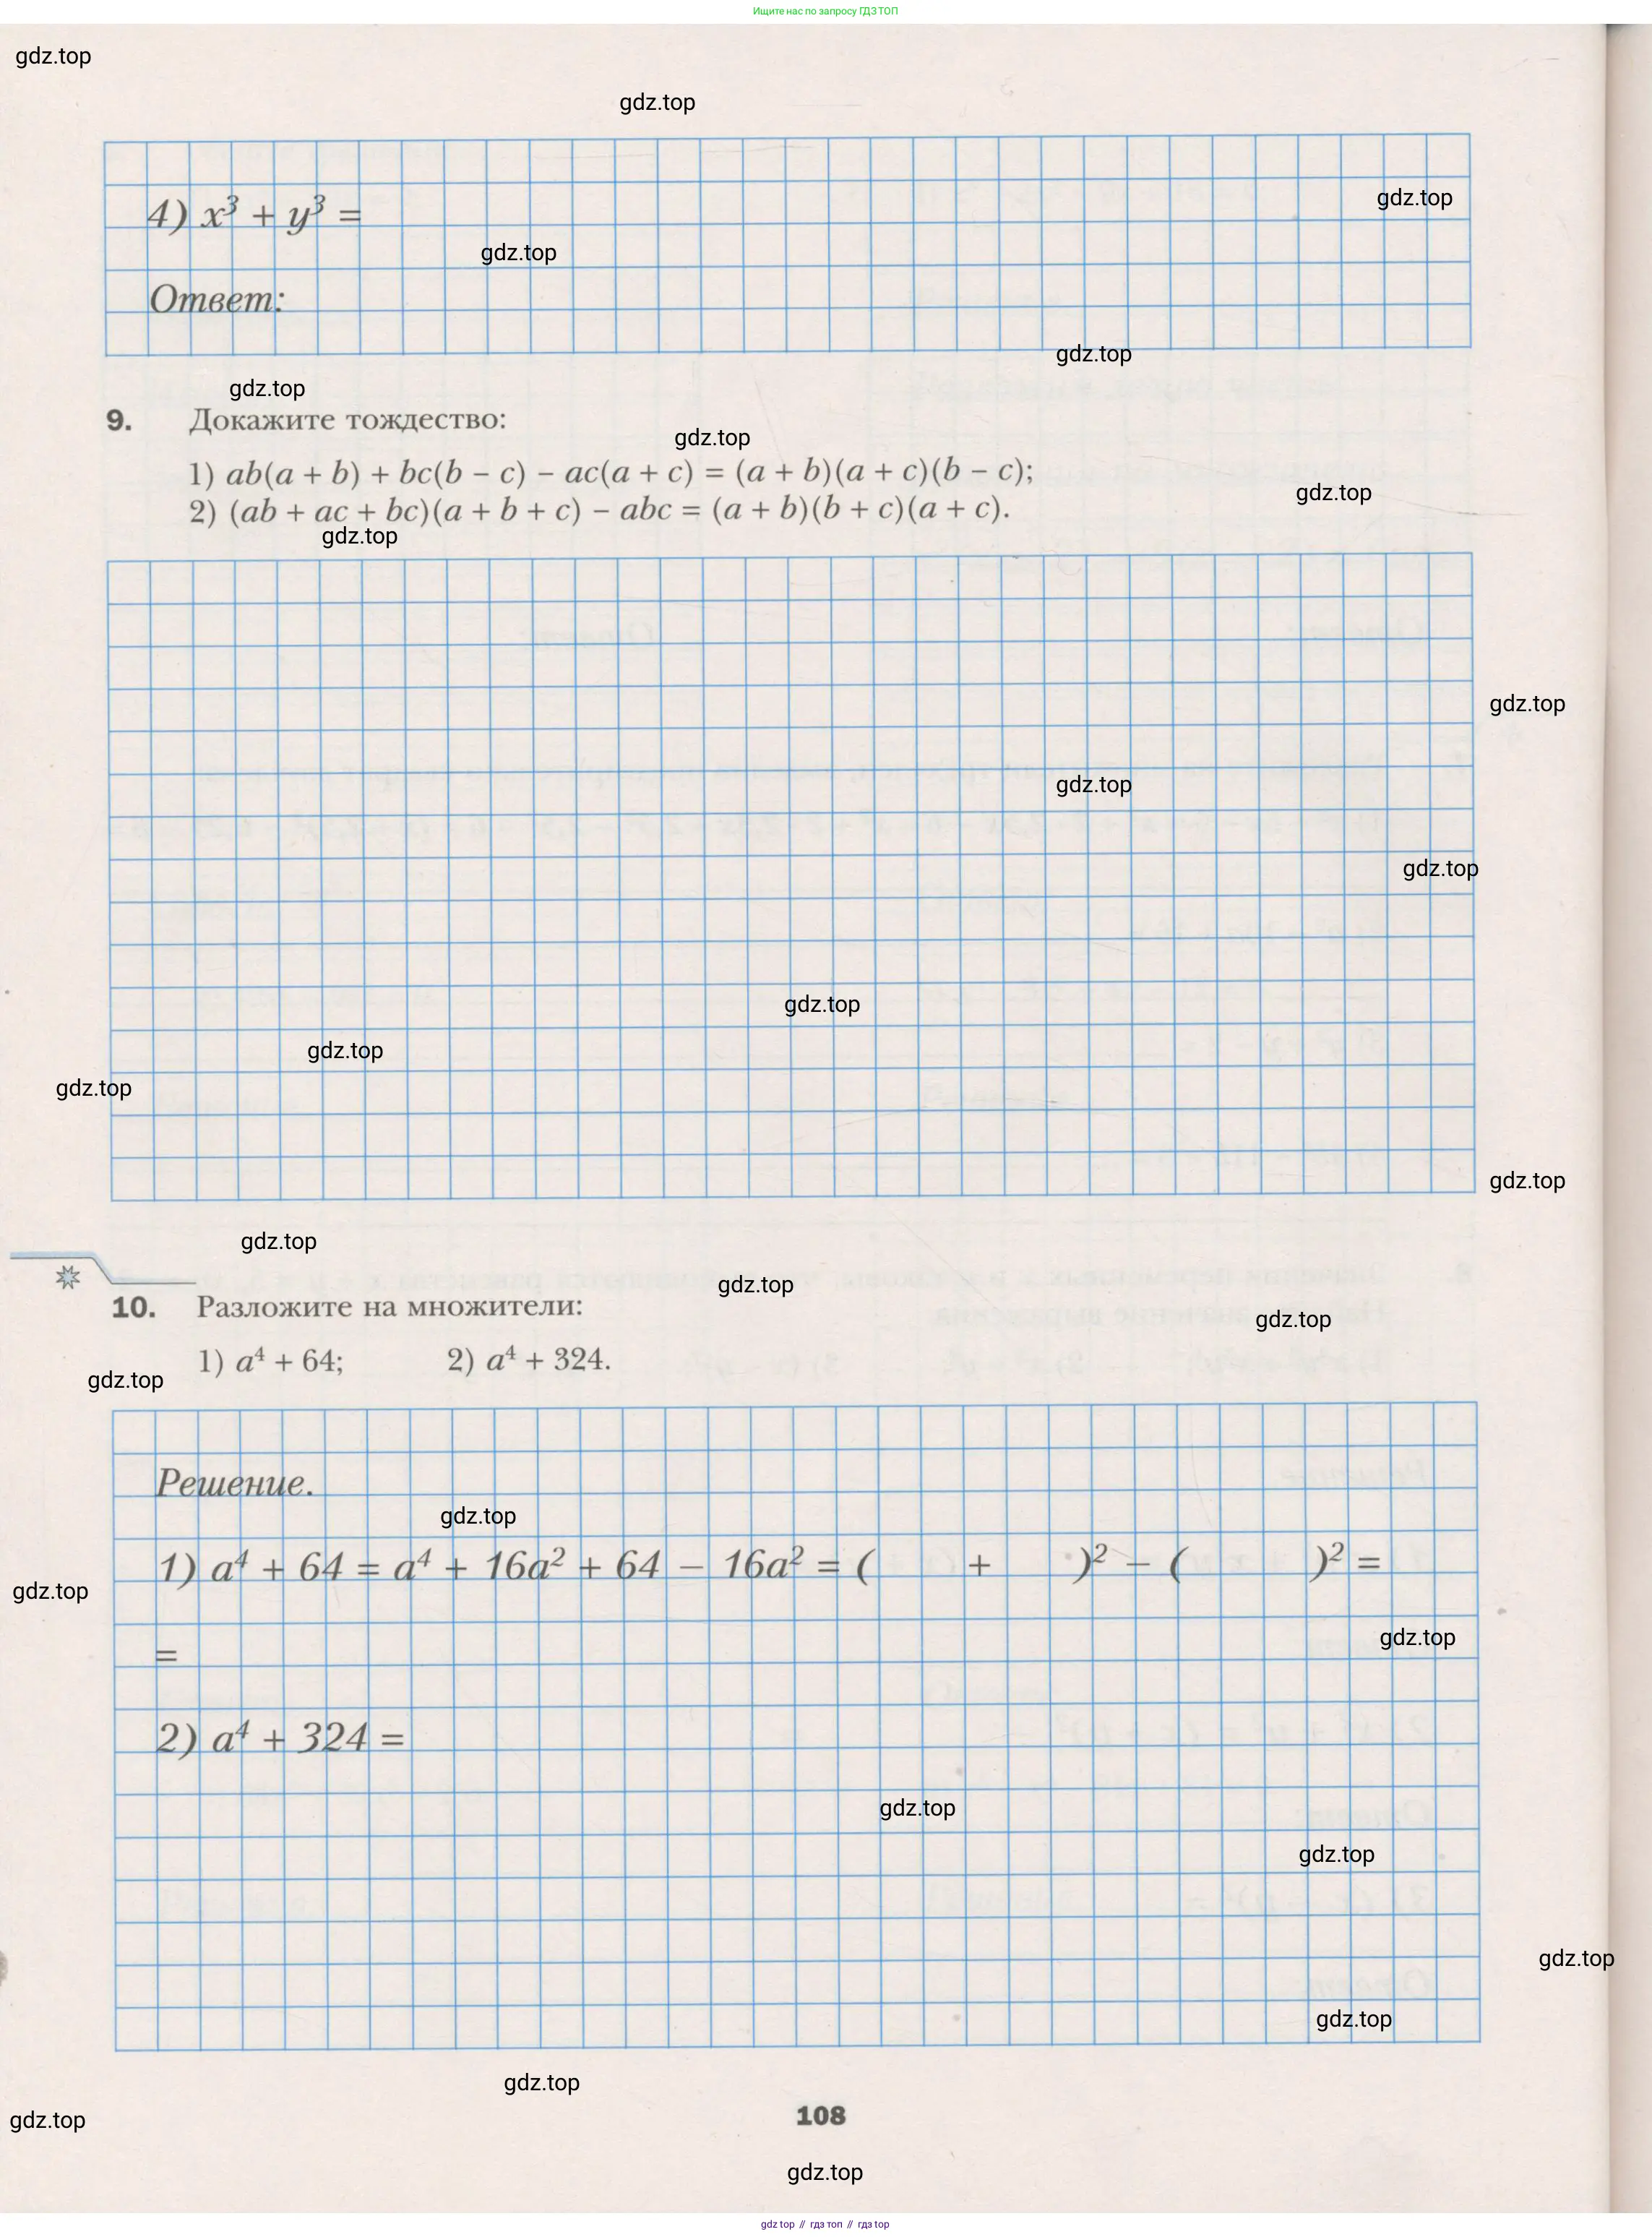 Ищите нас по запросу ГДЗ ТОП
gdz.top
gdz.top
4) x³ + y³ =
gdz.top
gdz.top
Ответ:
gdz.top
gdz.top
9. Докажите тождество:
gdz.top
1) ab(a + b) + bc(b − c) − ac(a + c) = (a + b)(a + c)(b − c);
gdz.top
2) (ab + ac + bc)(a + b + c) − abc = (a + b)(b + c)(a + c).
gdz.top
gdz.top
gdz.top
gdz.top
gdz.top
gdz.top
gdz.top
gdz.top
gdz.top
gdz.top
10. Разложите на множители:
gdz.top
1) a⁴ + 64; 2) a⁴ + 324.
gdz.top
Решение.
gdz.top
1) a⁴ + 64 = a⁴ + 16a² + 64 − 16a² = ( + )² − ( )² =
gdz.top
gdz.top
=
2) a⁴ + 324 =
gdz.top
gdz.top
gdz.top
gdz.top
gdz.top
108
gdz.top
gdz.top
gdz top // гдз топ // гдз top